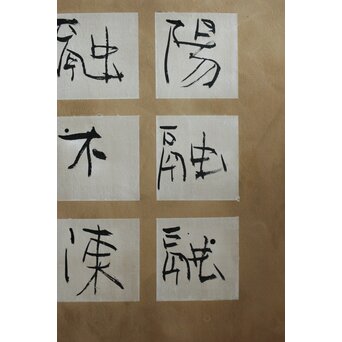 陽融融
融不凍